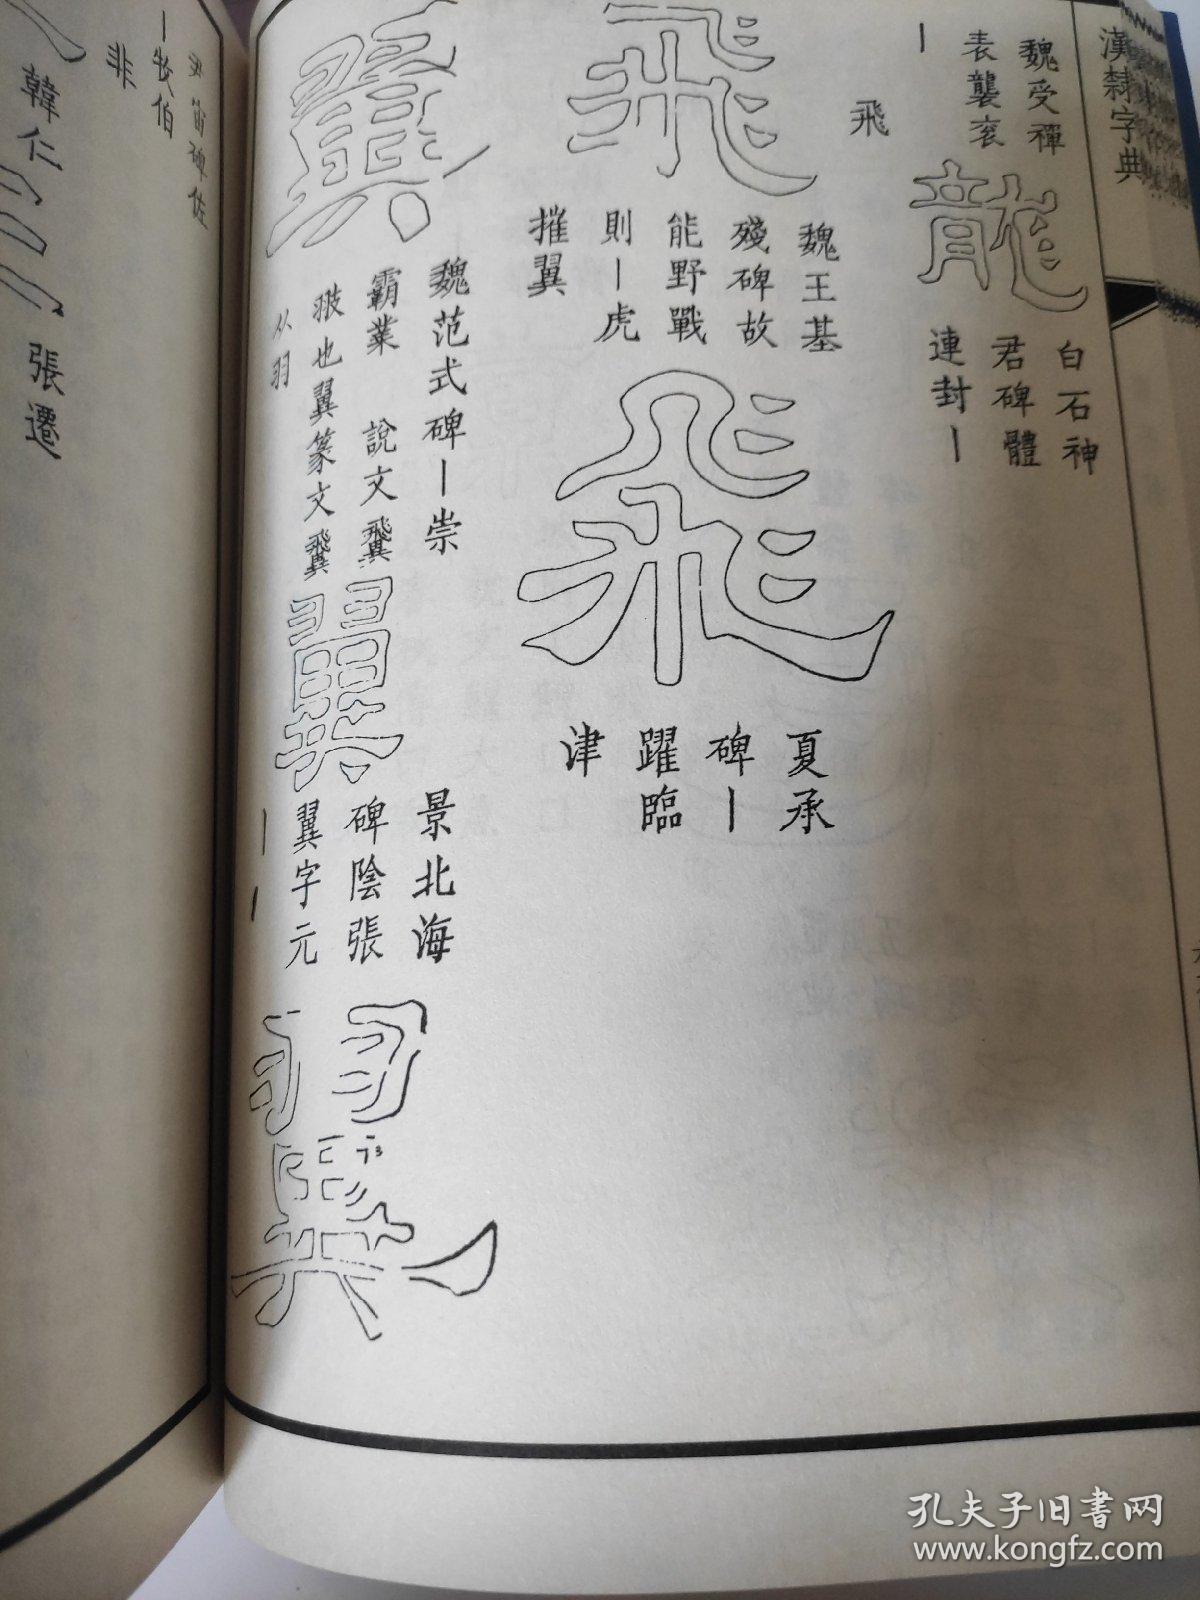 漢隸字典
魏受禪
表襲衮
｜
龍
白石神
君碑體
連封｜
飛
飛
魏王基
殘碑故
能野戰
則｜虎
摧翼
飛
夏承
碑｜
躍臨
津
翼
魏范式碑｜崇
霸業 說文䬇
翄也翼篆文䬇
从羽
翼
景北海
碑陰張
翼字元
｜｜
翼
｜牧伯
非
韓仁
張遷
孔夫子旧书网
www.kongfz.com